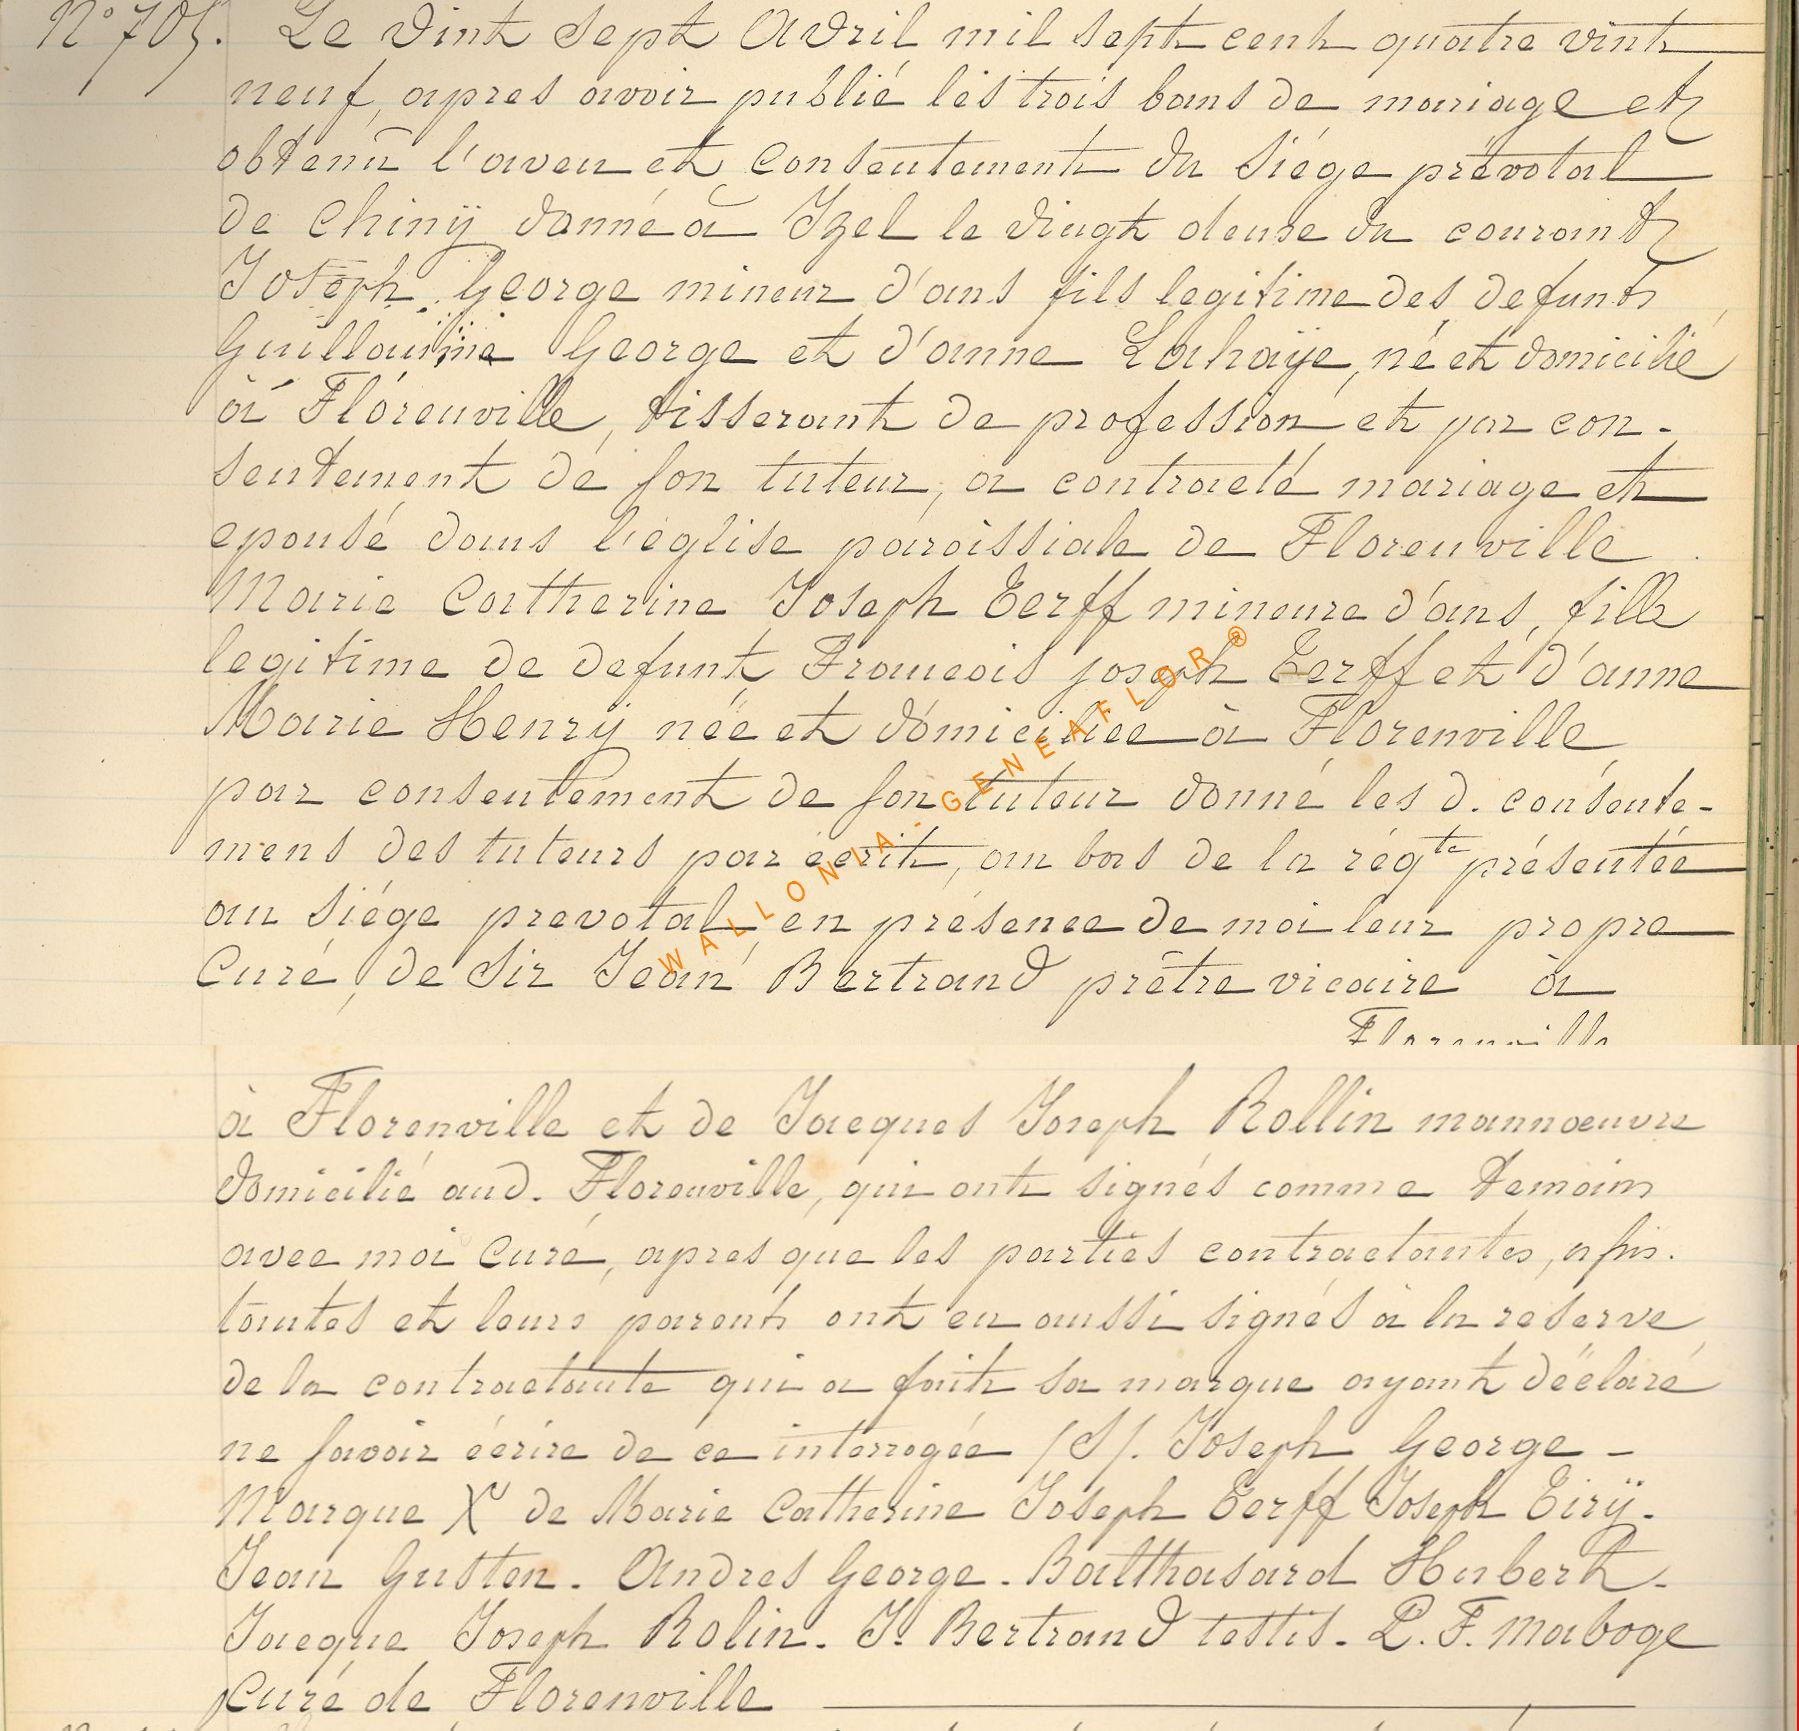 N° 705. Le vint sept Avril mil sept cent quatre vint
neuf, apres avoir publié les trois bans de mariage et
obtenu l'aveu et consentement du siége prévotal
de Chinÿ donné à Izel le vingt deuse du courant
Joseph George mineur d'ans fils legitime des defunts
Guillaume George et d'anne Lahaÿe, né et domicilié
à Florenville, tisserant de profession et par con-
sentement de son tuteur, a contracté mariage et
epousé dans l'église paroissiale de Florenville
Marie Catherine Joseph Eerff mineure d'ans, fille
legitime de defunt Francois joseph Eerff et d'anne
Marie Henry née et domiciliee à Florenville
par consentement de son tuteur donné les d. consente-
mens des tuteurs par écrit, au bas de la rég.te présentée
au siége prevotal en présence de moi leur propre
Curé, de Sir Jean Bertrand prêtre vicaire à
Florenville
à Florenville et de Jacques Joseph Rollin mannœuvre
domicilié aud. Florenville, qui ont signés comme temoins
avec moi Curé, apres que les parties contractantes, assis.
tantes et leurs parents ont eu aussi signés à la reserve
de la contractante qui a fait sa marque ayant déclaré
ne savoir écrire de ce interrogée /S/. Joseph George -
Marque X de Marie Catherine Joseph Eerff Joseph Eirÿ.
Jean Guston. Andres George. Balthasard Hubert.
Jacque Joseph Rolin. J. Bertrand testis. P. F. Maboge
Curé de Florenville
WALLONIA - GENEAFLOR®